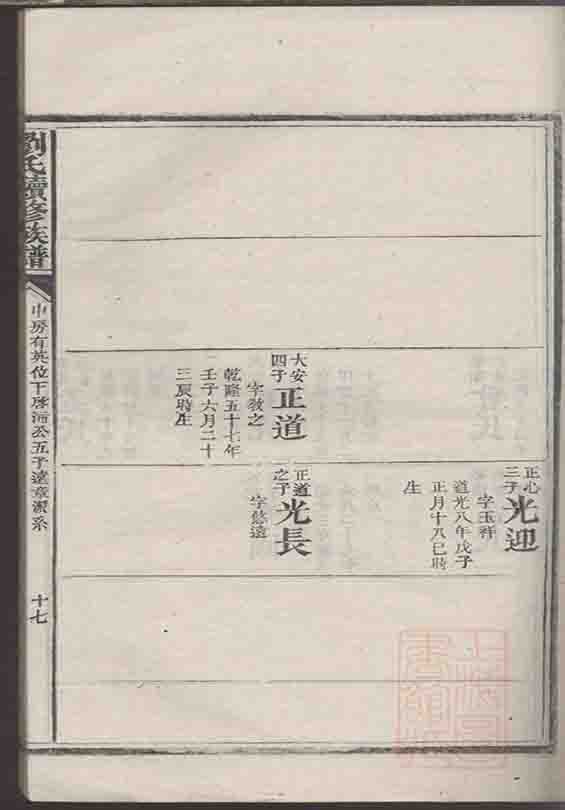 劉氏續修族譜
中房有英位下啓沛公五子遠章瀠系
十七
大安四子 正道
字教之
乾隆五十七年
壬子六月二十
三辰時生
正心三子 光迎
字玉祥
道光八年戊子
正月十八巳時
生
正道之子 光長
字悠遠